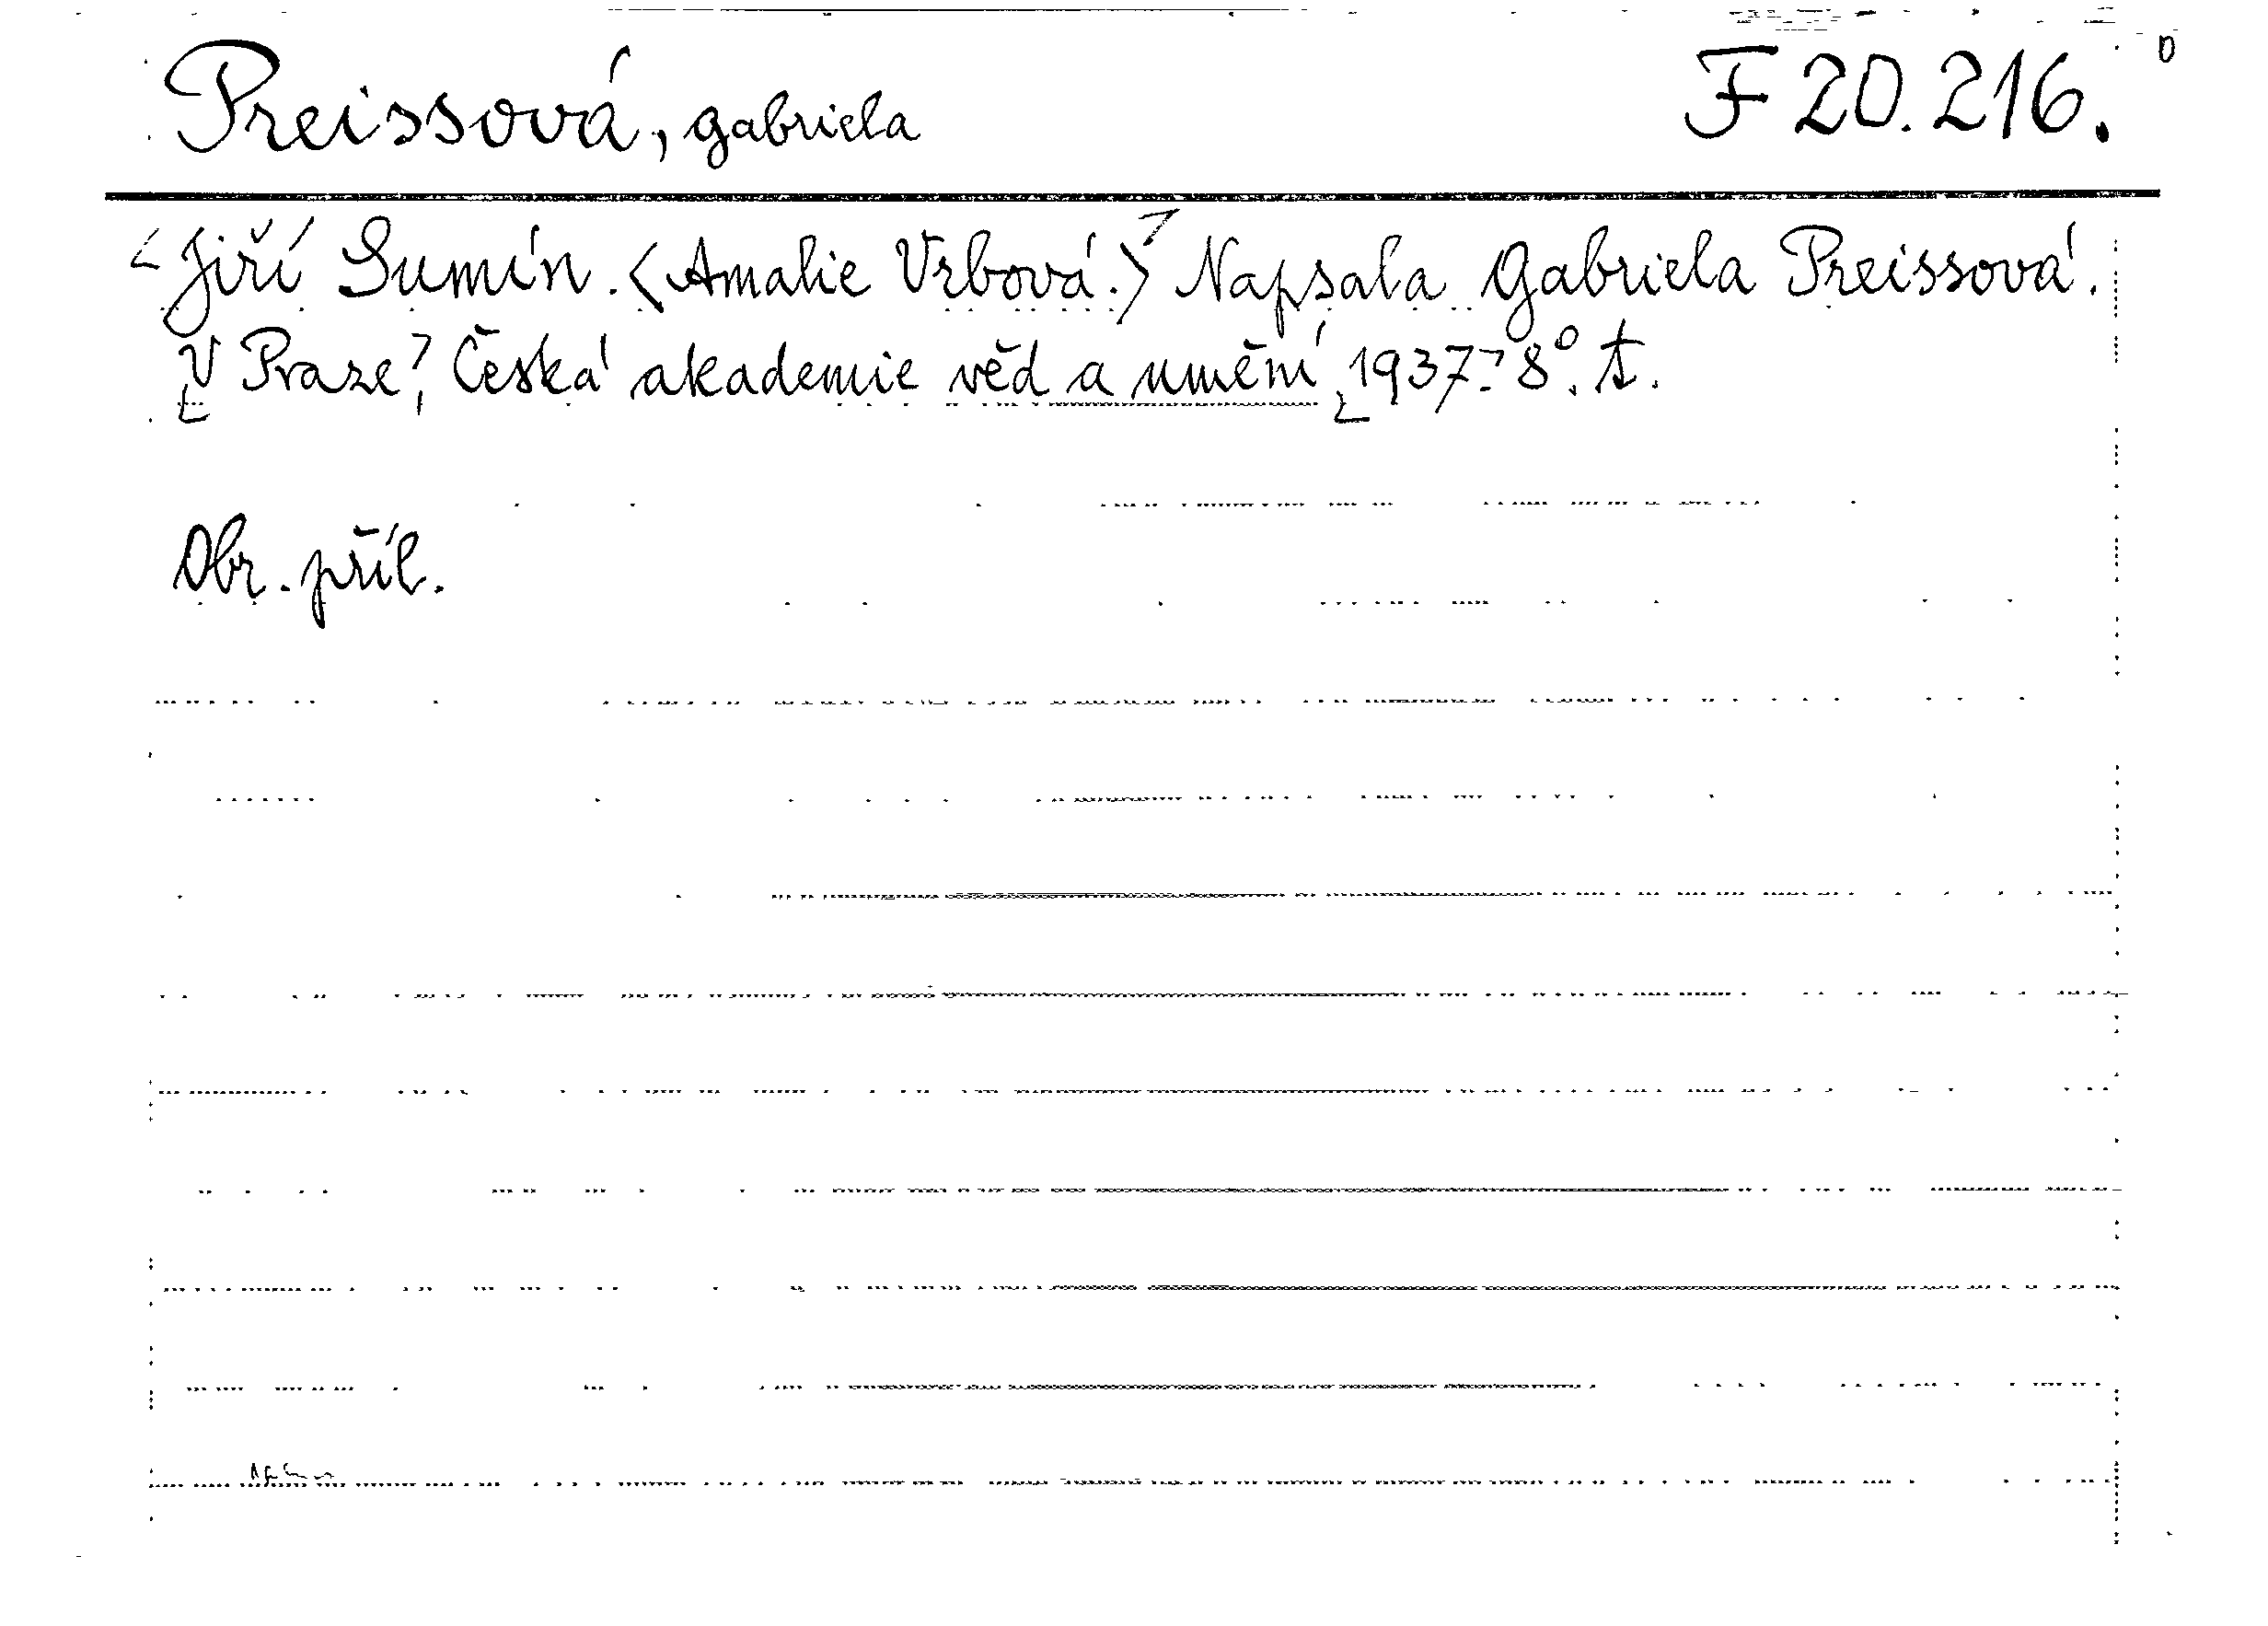 Preissová, Gabriela F 20.216.
Jiří Sumín. <Amalie Vrbová.> Napsala Gabriela Preissová.
V Praze, Česká akademie věd a umění 1937. 8°.
Obr. příl.